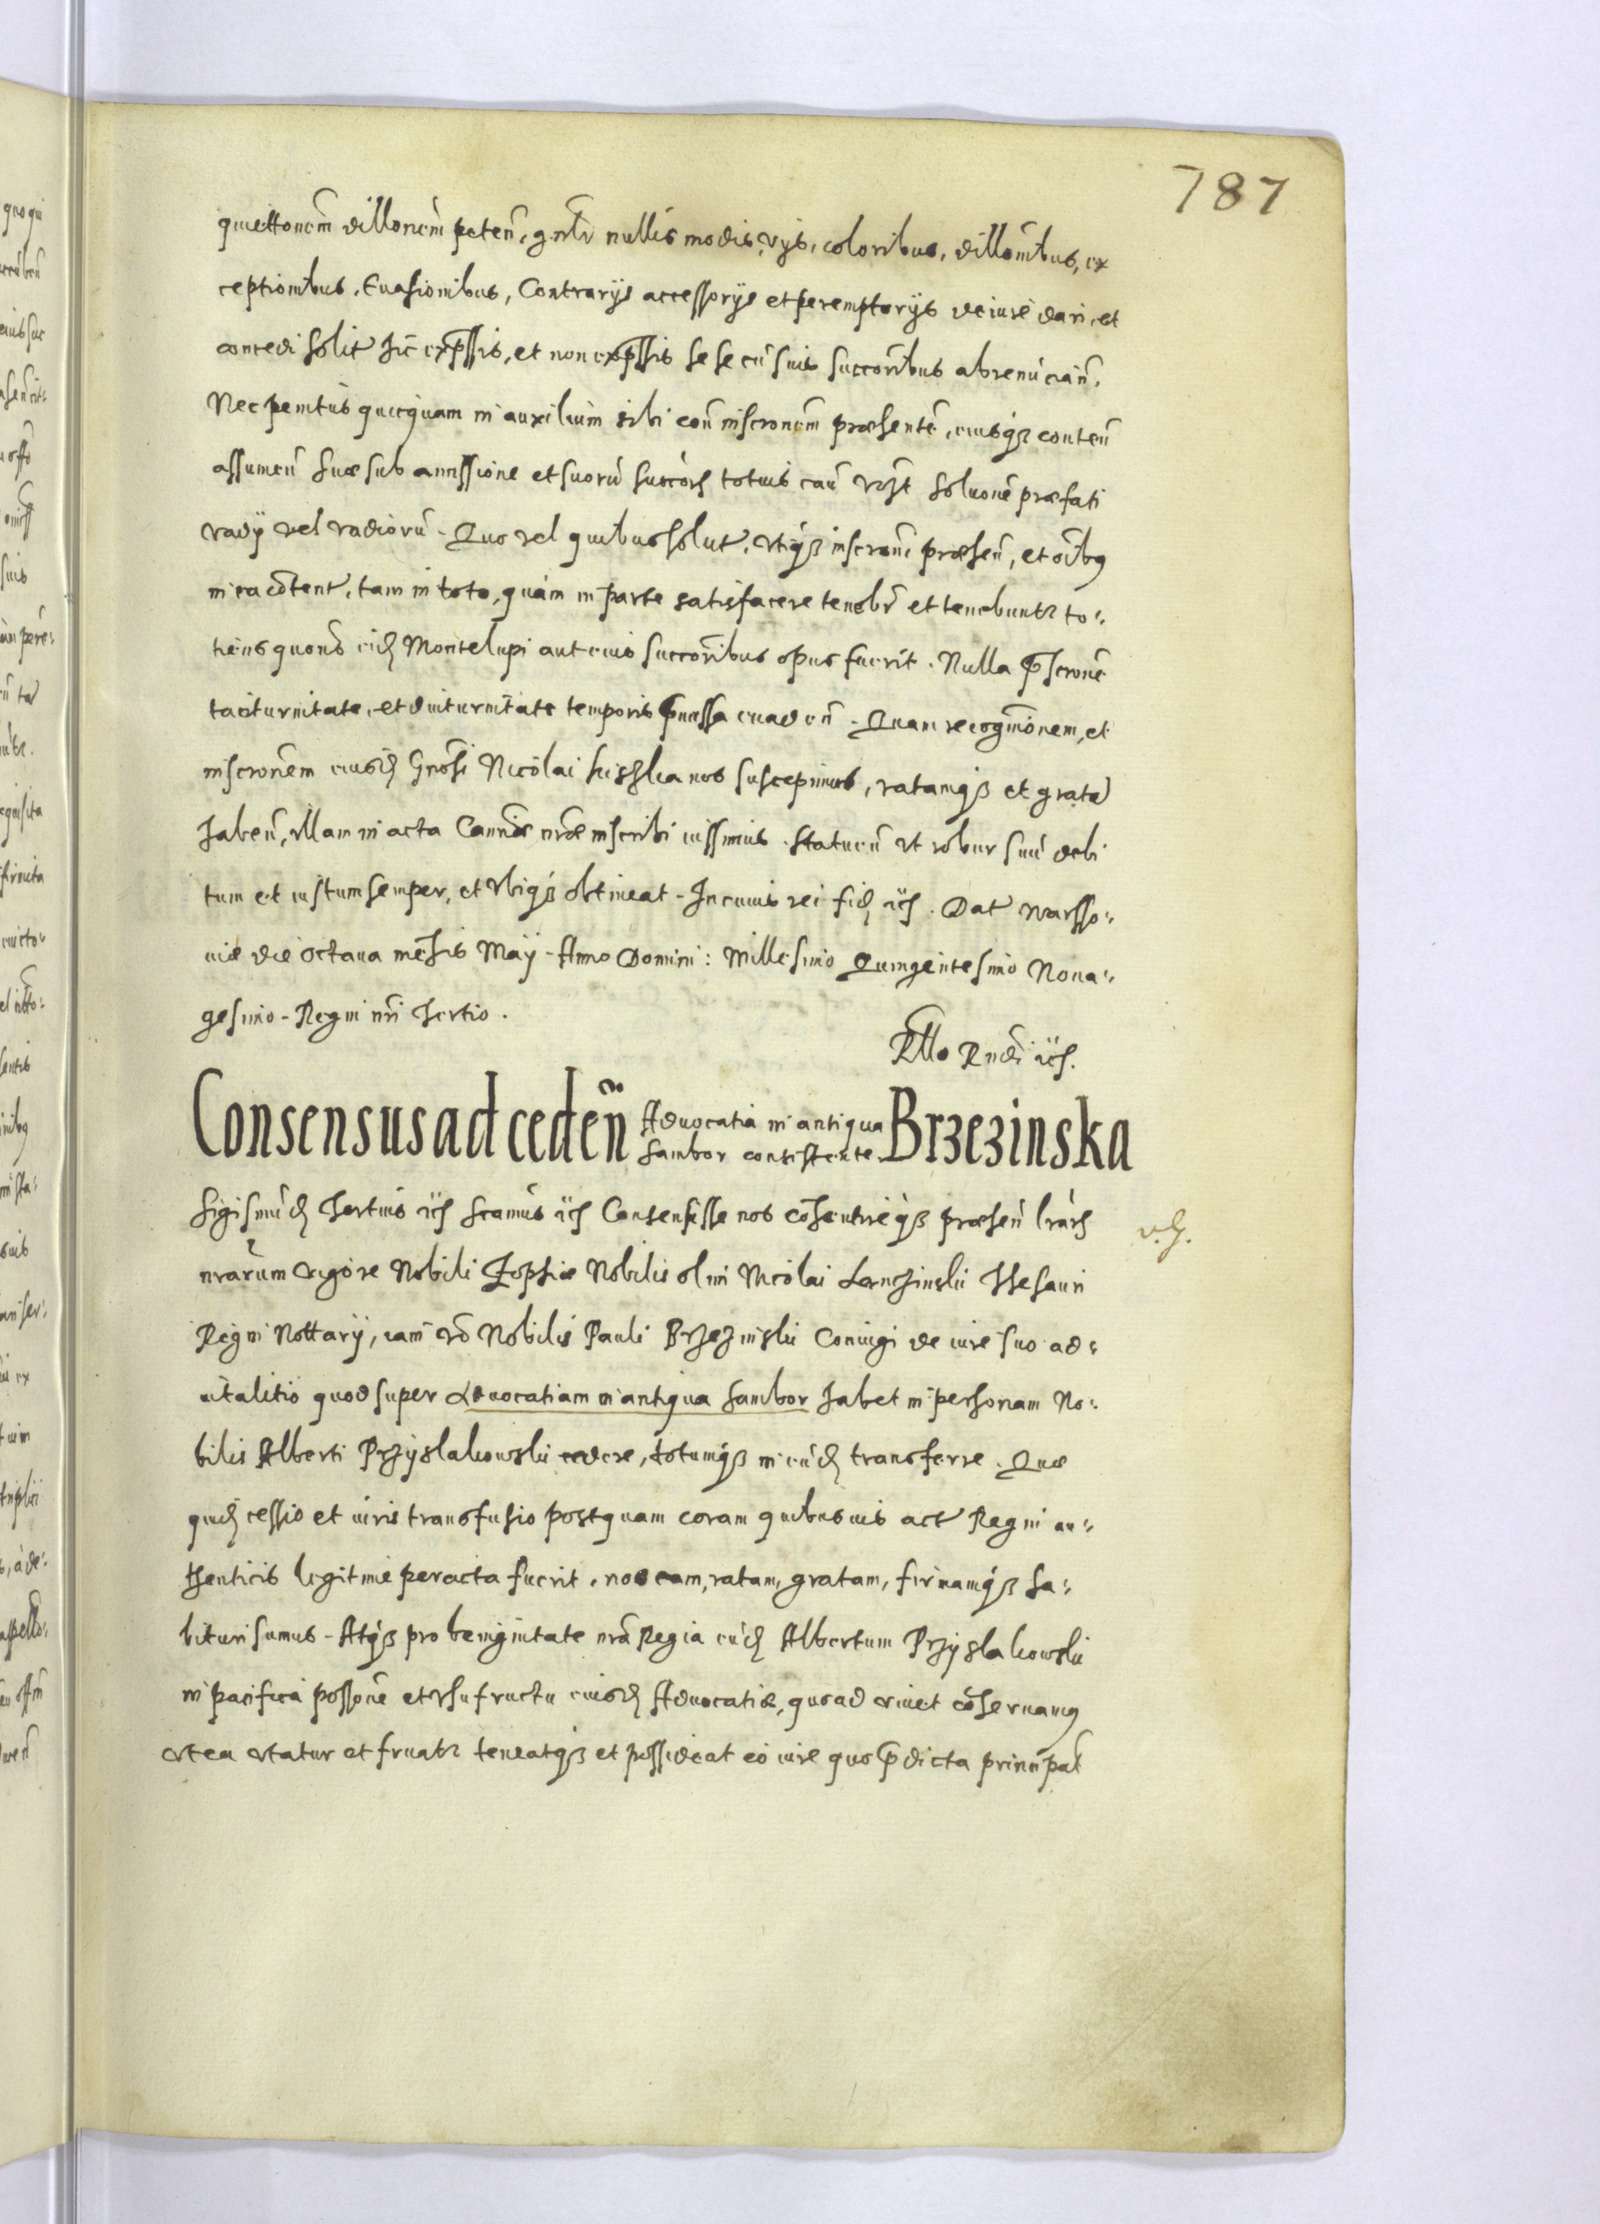 787
quiettonem dillonem peten, gnlr nullis modis, vijs, coloribus, dillombus, ex
ceptionibus, Euasionibus, Contrarijs accessorijs et peremptorijs de iure dari, et
concedi solit hic expssis, et non expssis se se cu suis succoribus abrenucian.
Nec penitus quicquam in auxilium sibi con inscronem præsente, eiusqз conten
assumen suæ sub amissione et suoru succorũ totius cau solucone præfati
vadij vel vadioru. Quo vel quibus solut, inscrone præsen, et oibus
in ea cotent, tam in toto, quàm in parte satisfacere tenebr et tenebuntr to=
tiens quoties eid Montelupi aut eius succoribus opus fuerit. Nulla pscrone
taciturnitate, et diuturnitate temporis pmissa euaden. Quam recognionem, et
inscronem eiusd Gnosi Nicolai nos suscepimus, ratamqз et grata
haben, illam in acta Cancellariæ nræ inscribi iussimus. Statuen vt robur suu debi
tum et iustum semper, et vbiqз obtineat. In cuius rei fid etc. Dat Warsso=
uiæ die octaua mensis Maij. Anno Domini: Millesimo Quingentesimo Nona=
gesimo. Regni nri tertio.
Rllo Rndi etc.
Consensus ad ceden Aduocatia in antiqua Sambor consistente. Brzezinska
Sigismud Tertius etc Scamus etc Consensisse nos cosentireqз præsen lrarũ
v. g.
nrarum vigore Nobili Zophiæ Nobilis olim Nicolai Lenczinskii Thesauri
Regni Nottarij, iam vo Nobilis Pauli Brzezinskii Coniugi de iure suo ad=
uitalitio quod super Aduocatiam in antiqua Sambor habet in personam No=
bilis Alberti Przyslakowskii cedere, totumqз in eud transferre. Quæ
quid cessio et iuris transfusio postquam coram quibusuis act Regni au=
thenticis legitime peracta fuerit, nos eam, ratam, gratam, firmamqз ha=
bituri sumus. Atqз pro benignitate nra Regia eud Albertum Przyslakowskii
in pacifica possone et vsufructu eiusd Aduocatiæ, quoad viuet coseruamus
vt ea vtatur et fruatr teneatqз et possideat eo iure quo pdicta principal